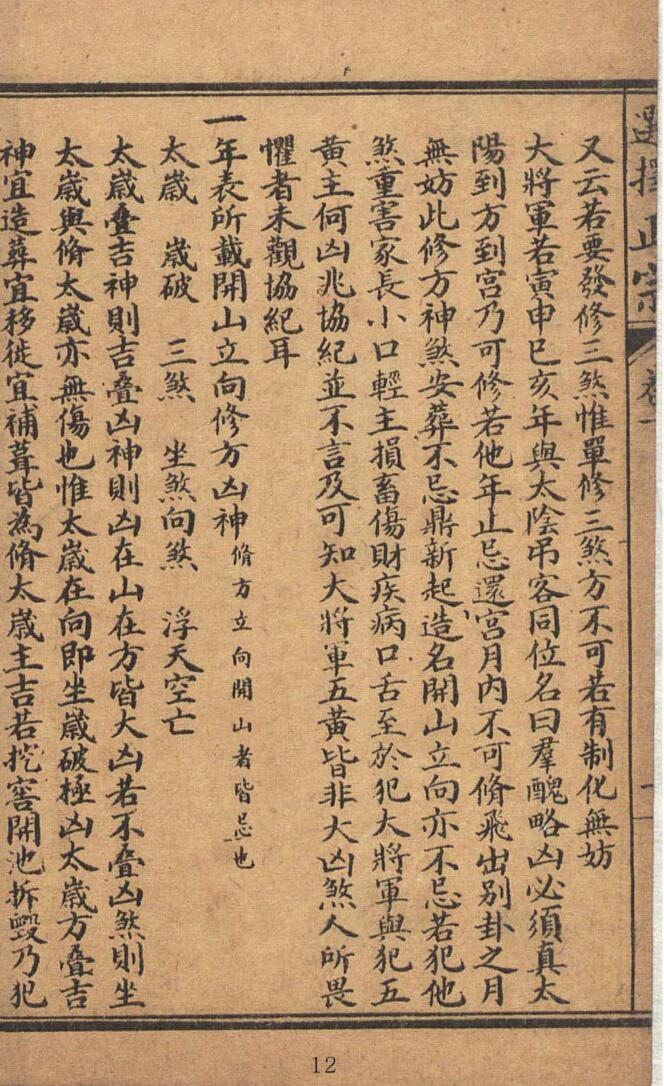 選擇正宗 卷一
又云若要發修三煞惟單修三煞方不可若有制化無妨
大將軍若寅申巳亥年與太陰吊客同位名曰羣醜略凶必須真太
陽到方到宮乃可修若他年止忌還宮月內不可脩飛出別卦之月
無妨此修方神煞安葬不忌鼎新起造名開山立向亦不忌若犯他
煞重害家長小口輕主損畜傷財疾病口舌至於犯大將軍與犯五
黃主何凶兆協紀並不言及可知大將軍五黃皆非大凶煞人所畏
懼者未觀協紀耳
一年表所載開山立向修方凶神脩方立向開山者皆忌也
太歲 歲破 三煞 坐煞向煞 浮天空亡
太歲疊吉神則吉疊凶神則凶在山在方皆大凶若不疊凶煞則坐
太歲與脩太歲亦無傷也惟太歲在向即坐歲破極凶太歲方疊吉
神宜造葬宜移徙宜補葺皆為脩太歲主吉若挖窖開池拆毀乃犯
12